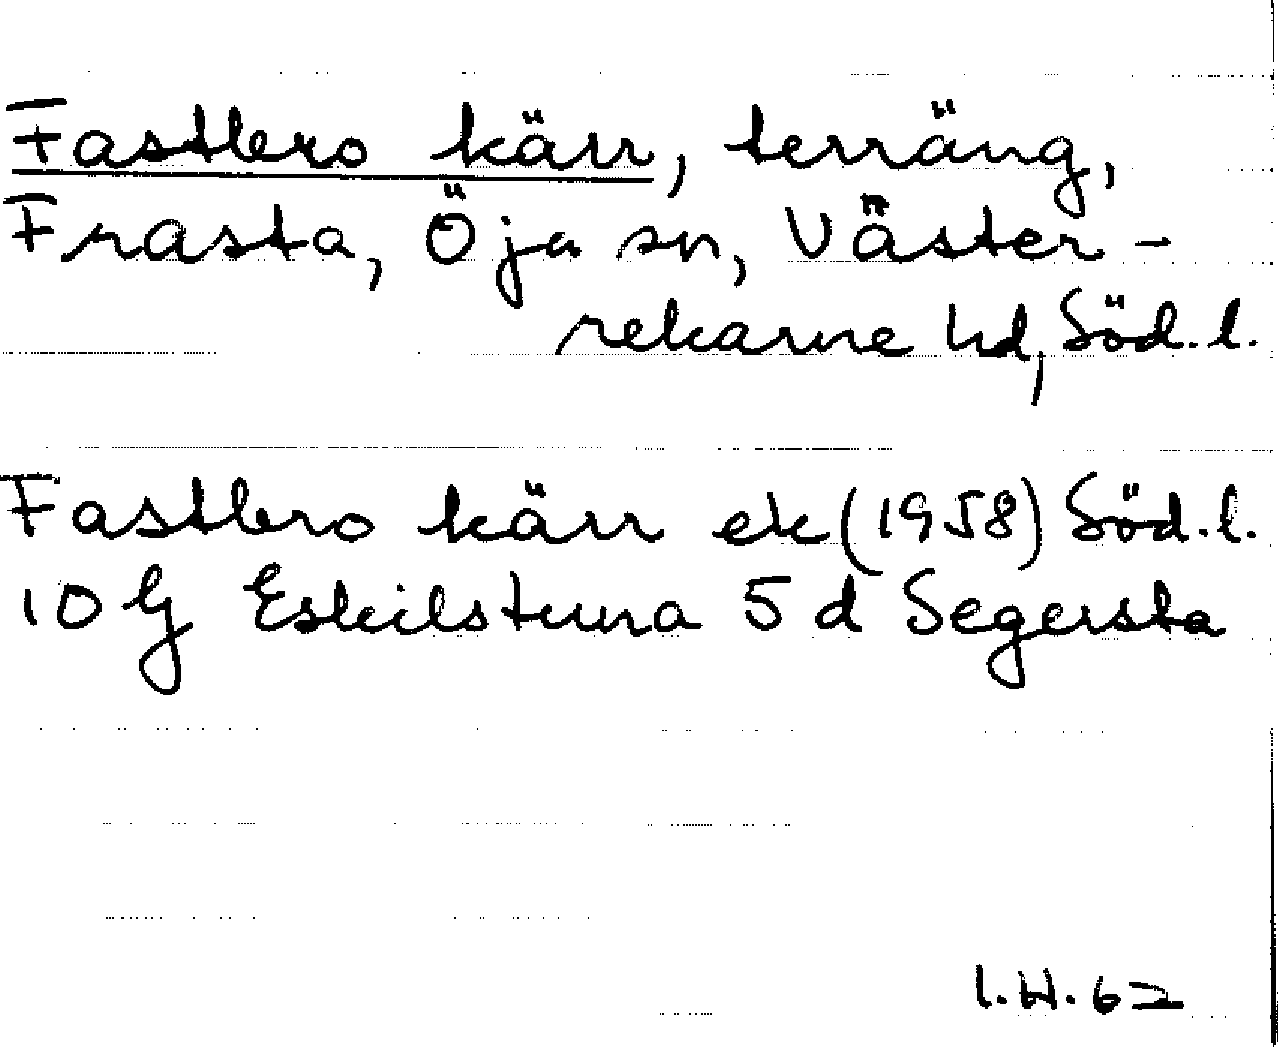 Fastbro kärr, terräng,
Frasta, Öja sn, Väster-
rekarne hd, Söd.l.
Fastbro kärr ek (1958) Söd.l.
10 G Eskilstuna 5 d Segersta
I.H. 62